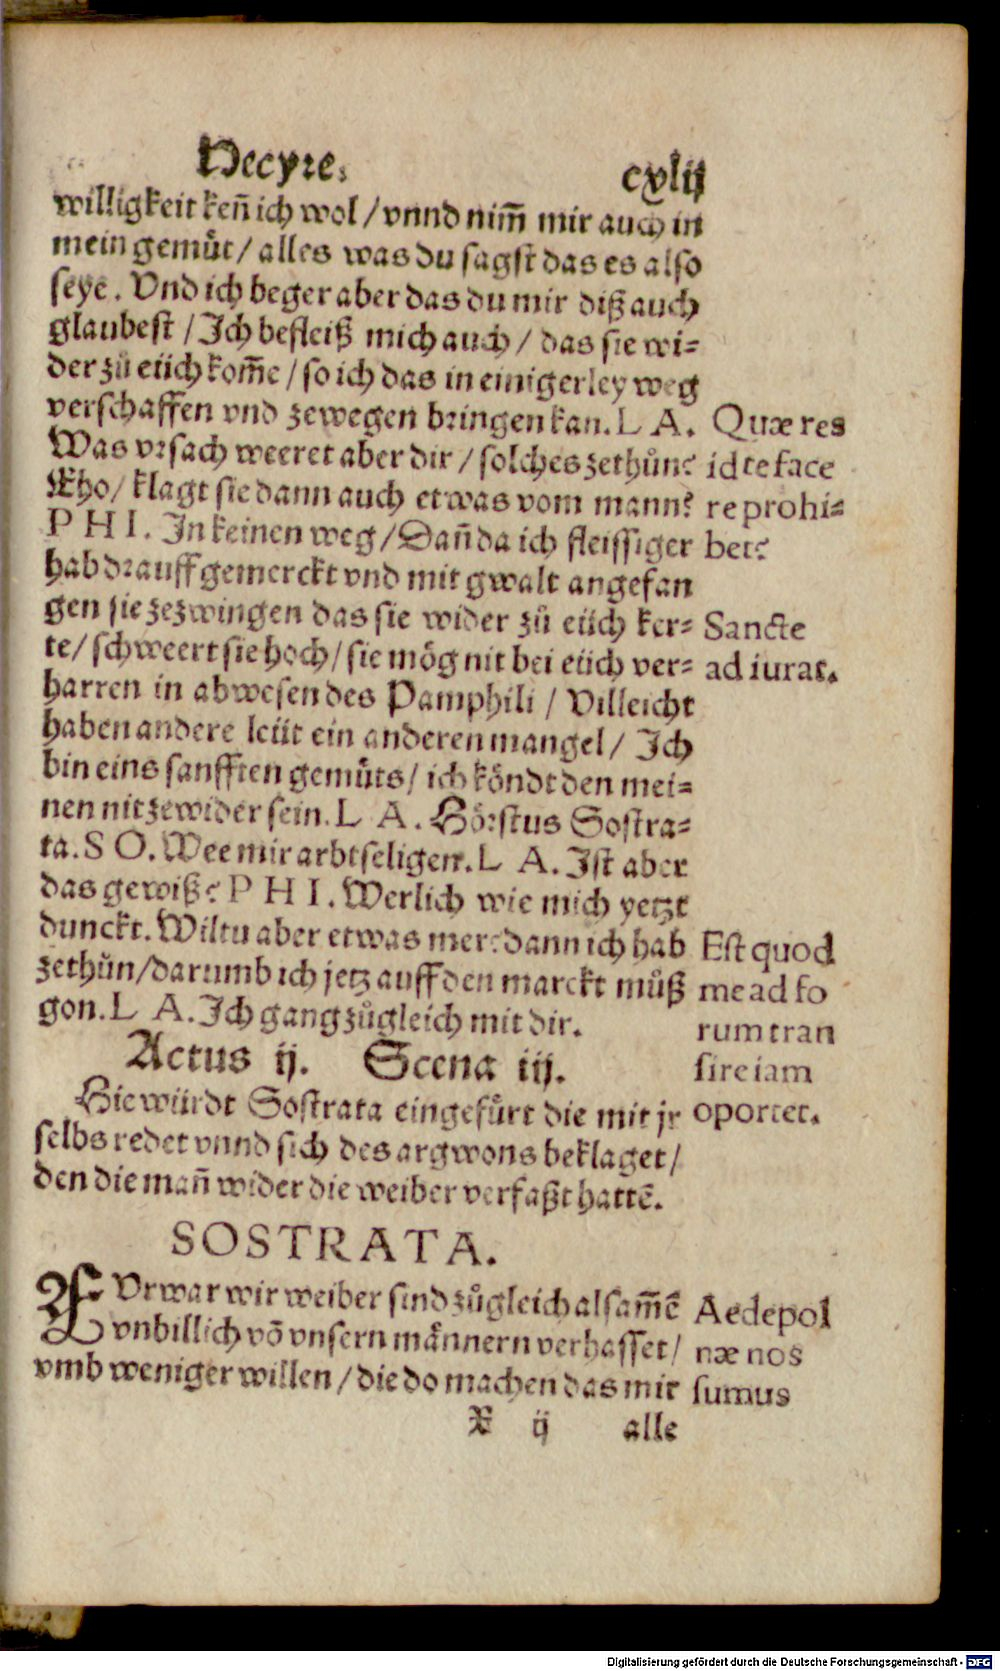 Hecyre.
cxlij
willigkeit keñ ich wol / vnnd nim̄ mir auch in
mein gemuͤt / alles was du sagst das es also
seye . Vnd ich beger aber das du mir diß auch
glaubest / Ich befleiß mich auch / das sie wi⸗
der zů eüch kom̄e / so ich das in einigerley weg
verschaffen vnd zewegen bringen kan. L A.
Was vrsach weeret aber dir / solches zethůn?
Eho / klagt sie dann auch etwas vom mann?
P H I . In keinen weg / Dañ da ich fleissiger
hab drauff gemerckt vnd mit gwalt angefan
gen sie zezwingen das sie wider zů eüch ker⸗
te / schweert sie hoch / sie moͤg nit bei eüch ver⸗
harren in abwesen des Pamphili / Villeicht
haben andere leüt ein anderen mangel / Ich
bin eins sanfften gemuͤts / ich koͤndt den mei⸗
nen nit zewider sein. L A . Hoͤrstus Sostra⸗
ta. S O. Wee mir arbtseligen. L A. Ist aber
das gewiß? P H I . Werlich wie mich yetzt
dunckt. Wiltu aber etwas mer? dann ich hab
zethůn / darumb ich jetz auff den marckt můß
gon. L A. Ich gang zůgleich mit dir.
Actus ij. Scena iij.
Hie würdt Sostrata eingefuͤrt die mit jr
selbs redet vnnd sich des argwons beklaget /
den die mañ wider die weiber verfaßt hattē.
SOSTRATA.
FVrwar wir weiber sind zůgleich alsam̄ē
vnbillich vō vnsern maͤnnern verhasset /
vmb weniger willen / die do machen das mir
X ij alle
Quæ res
id te face
re prohi⸗
bet?
Sancte
adiurat.
Est quod
me ad fo
rum tran
sire iam
oportet.
Aedepol
næ nos
sumus
Digitalisierung gefördert durch die Deutsche Forschungsgemeinschaft - DFG